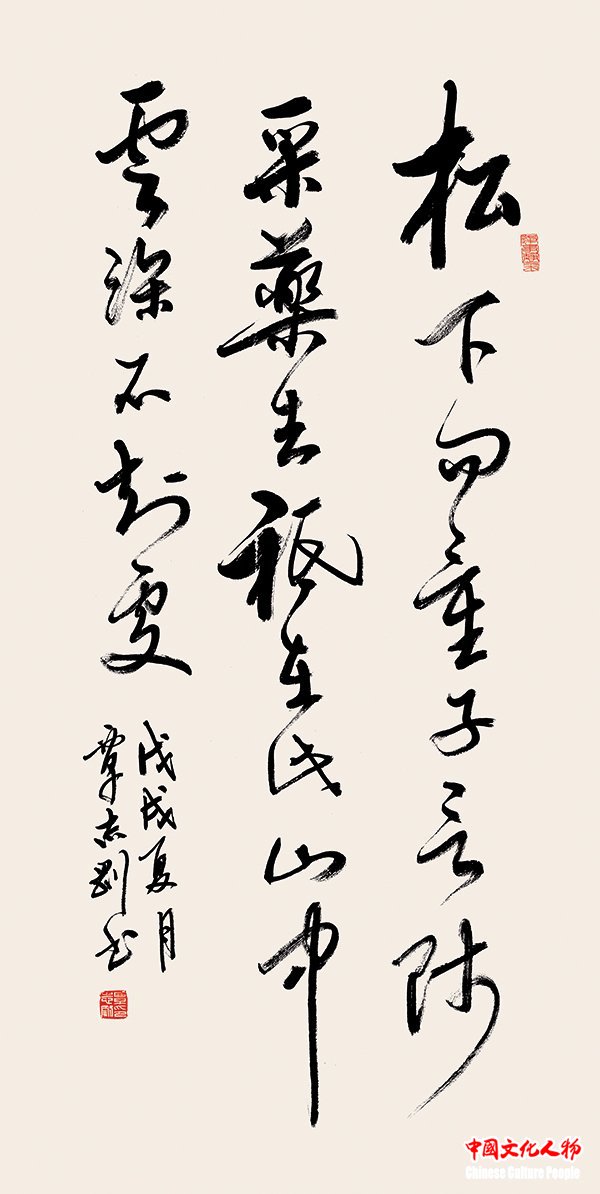 松下問童子言師
采藥去祗在此山中
雲深不知處
戊戌夏月
覃志剛書
中國文化人物
Chinese Culture People